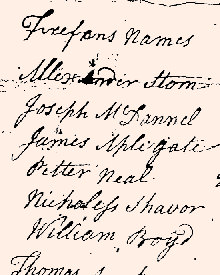 Trefans Names
Allexander Stom
Joseph McDannel
James Aplegate
Petter Neal
Nicholess Shavor
William Boyd
Thomas